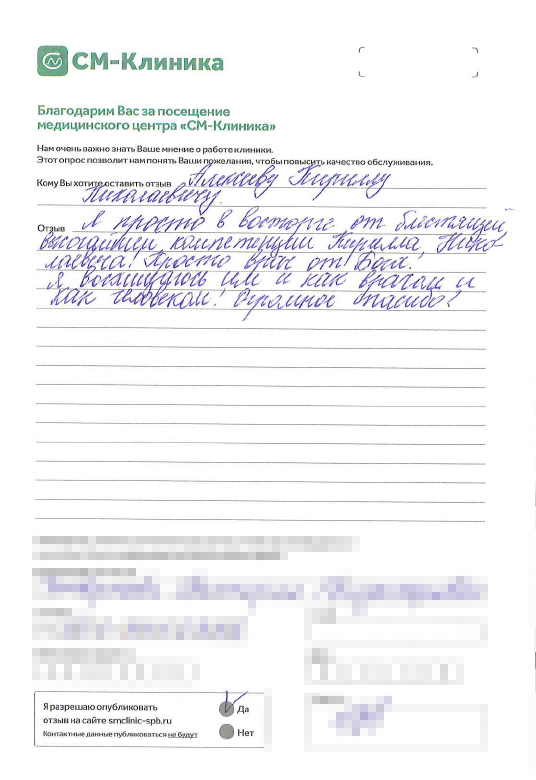 СМ-Клиника
Благодарим Вас за посещение
медицинского центра «СМ-Клиника»
Нам очень важно знать Ваше мнение о работе клиники.
Этот опрос позволит нам понять Ваши пожелания, чтобы повысить качество обслуживания.
Кому Вы хотите оставить отзыв Алексееву Кириллу
Николаевичу.
Отзыв Я просто в восторге от блестящей,
высочайшей компетенции Кирилла Нико-
лаевича! Просто врач от Бога!
Я восхищаюсь им и как врачом и
как человеком! Огромное спасибо!
Я разрешаю опубликовать
отзыв на сайте smclinic-spb.ru
Контактные данные публиковаться не будут
Да
Нет